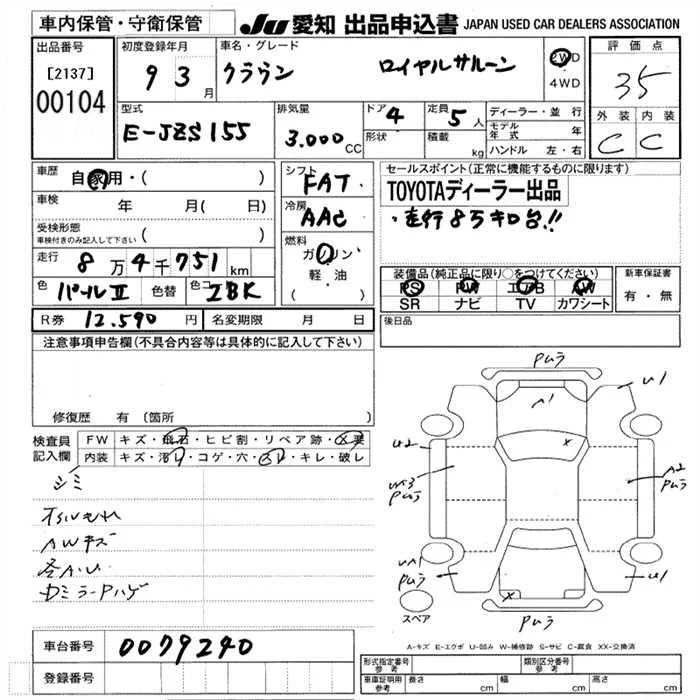 車内保管・守衛保管
JU 愛知 出品申込書 JAPAN USED CAR DEALERS ASSOCIATION
出品番号
[2137]
00104
初度登録年月
9 3 月
車名・グレード
クラウン ロイヤルサルーン
2WD
・
4WD
評価点
35
外装 内装
C C
型式
E-JZS155
排気量
3.000 CC
ドア 4
形状
定員 5 人
積載 kg
ディーラー・並行
モデル年式 年
ハンドル 左・右
車歴
自家用・( )
車検 年 月( 日)
受検形態
車検付きのみ記入して下さい ( )
走行
8万4千751 km
色 パールⅡ 色替 色コ IBK
シフト
FAT
冷房
AAC
燃料
ガソリン
軽・油
( )
セールスポイント(正常に機能するものに限ります)
TOYOTAディーラー出品
・走行85キロ台!!
装備品(純正品に限り○をつけてください)
PS PW エアB AW
SR ナビ TV カワシート
新車保証書
有・無
R券 12.590 円 名変期限 月 日
後日品
注意事項申告欄(不具合内容等は具体的に記入して下さい)
修復歴 有 (箇所
検査員
記入欄
FW キズ・飛石・ヒビ割・リペア跡・X要
内装 キズ・汚レ・コゲ・穴・スレ・キレ・破レ
シミ
AWキズ
各A.U
Dミラー Pハゲ
Pムラ
A1
U1
X
U2
A2
Pムラ
Pムラ
U1
X
Pムラ
スペア
A-キズ E-エクボ U-凹み W-補修跡 S-サビ C-腐食 XX-交換済
車台番号 0079240
登録番号
形式指定番号
参考
類別区分番号
参考
車庫証明用
参考
長さ cm 幅 cm 高さ cm